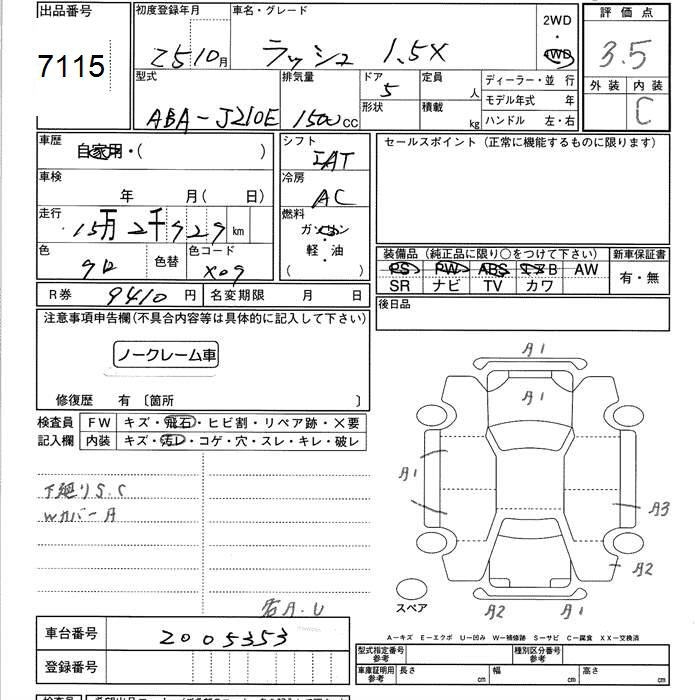 出品番号
7115
初度登録年月
Z5 10月
車名・グレード
ラッシュ 1.5X
2WD
・
4WD
評価点
3.5
外装 内装
C
型式
ABA-J210E
排気量
1500CC
ドア
5
形状
定員
人
積載
kg
ディーラー・並行
モデル年式 年
ハンドル 左・右
車歴
自家用・( )
車検
年 月( 日)
走行
15万2千929km
色
色替
色コード
X09
R券 9410円
名変期限 月 日
シフト
IAT
冷房
AC
燃料
ガソリン
軽・油
( )
セールスポイント (正常に機能するものに限ります)
装備品 (純正品に限り〇をつけて下さい)
PS PW ABS エアB AW
SR ナビ TV カワ
新車保証書
有・無
後日品
注意事項申告欄(不具合内容等は具体的に記入して下さい)
ノークレーム車
修復歴 有 〔箇所 〕
検査員
記入欄
FW キズ・飛石・ヒビ割・リペア跡・×要
内装 キズ・汚レ・コゲ・穴・スレ・キレ・破レ
下廻りS.C
WカバーA
A.U
A1
A1
A1
A3
A2
A2
A1
スペア
A-キズ E-エクボ U-凹み W-補修跡 S-サビ C-腐食 XX-交換済
車台番号 Z005353
登録番号
型式指定番号
参考
種別区分番号
参考
車庫証明用
参考
長さ cm
幅 cm
高さ cm